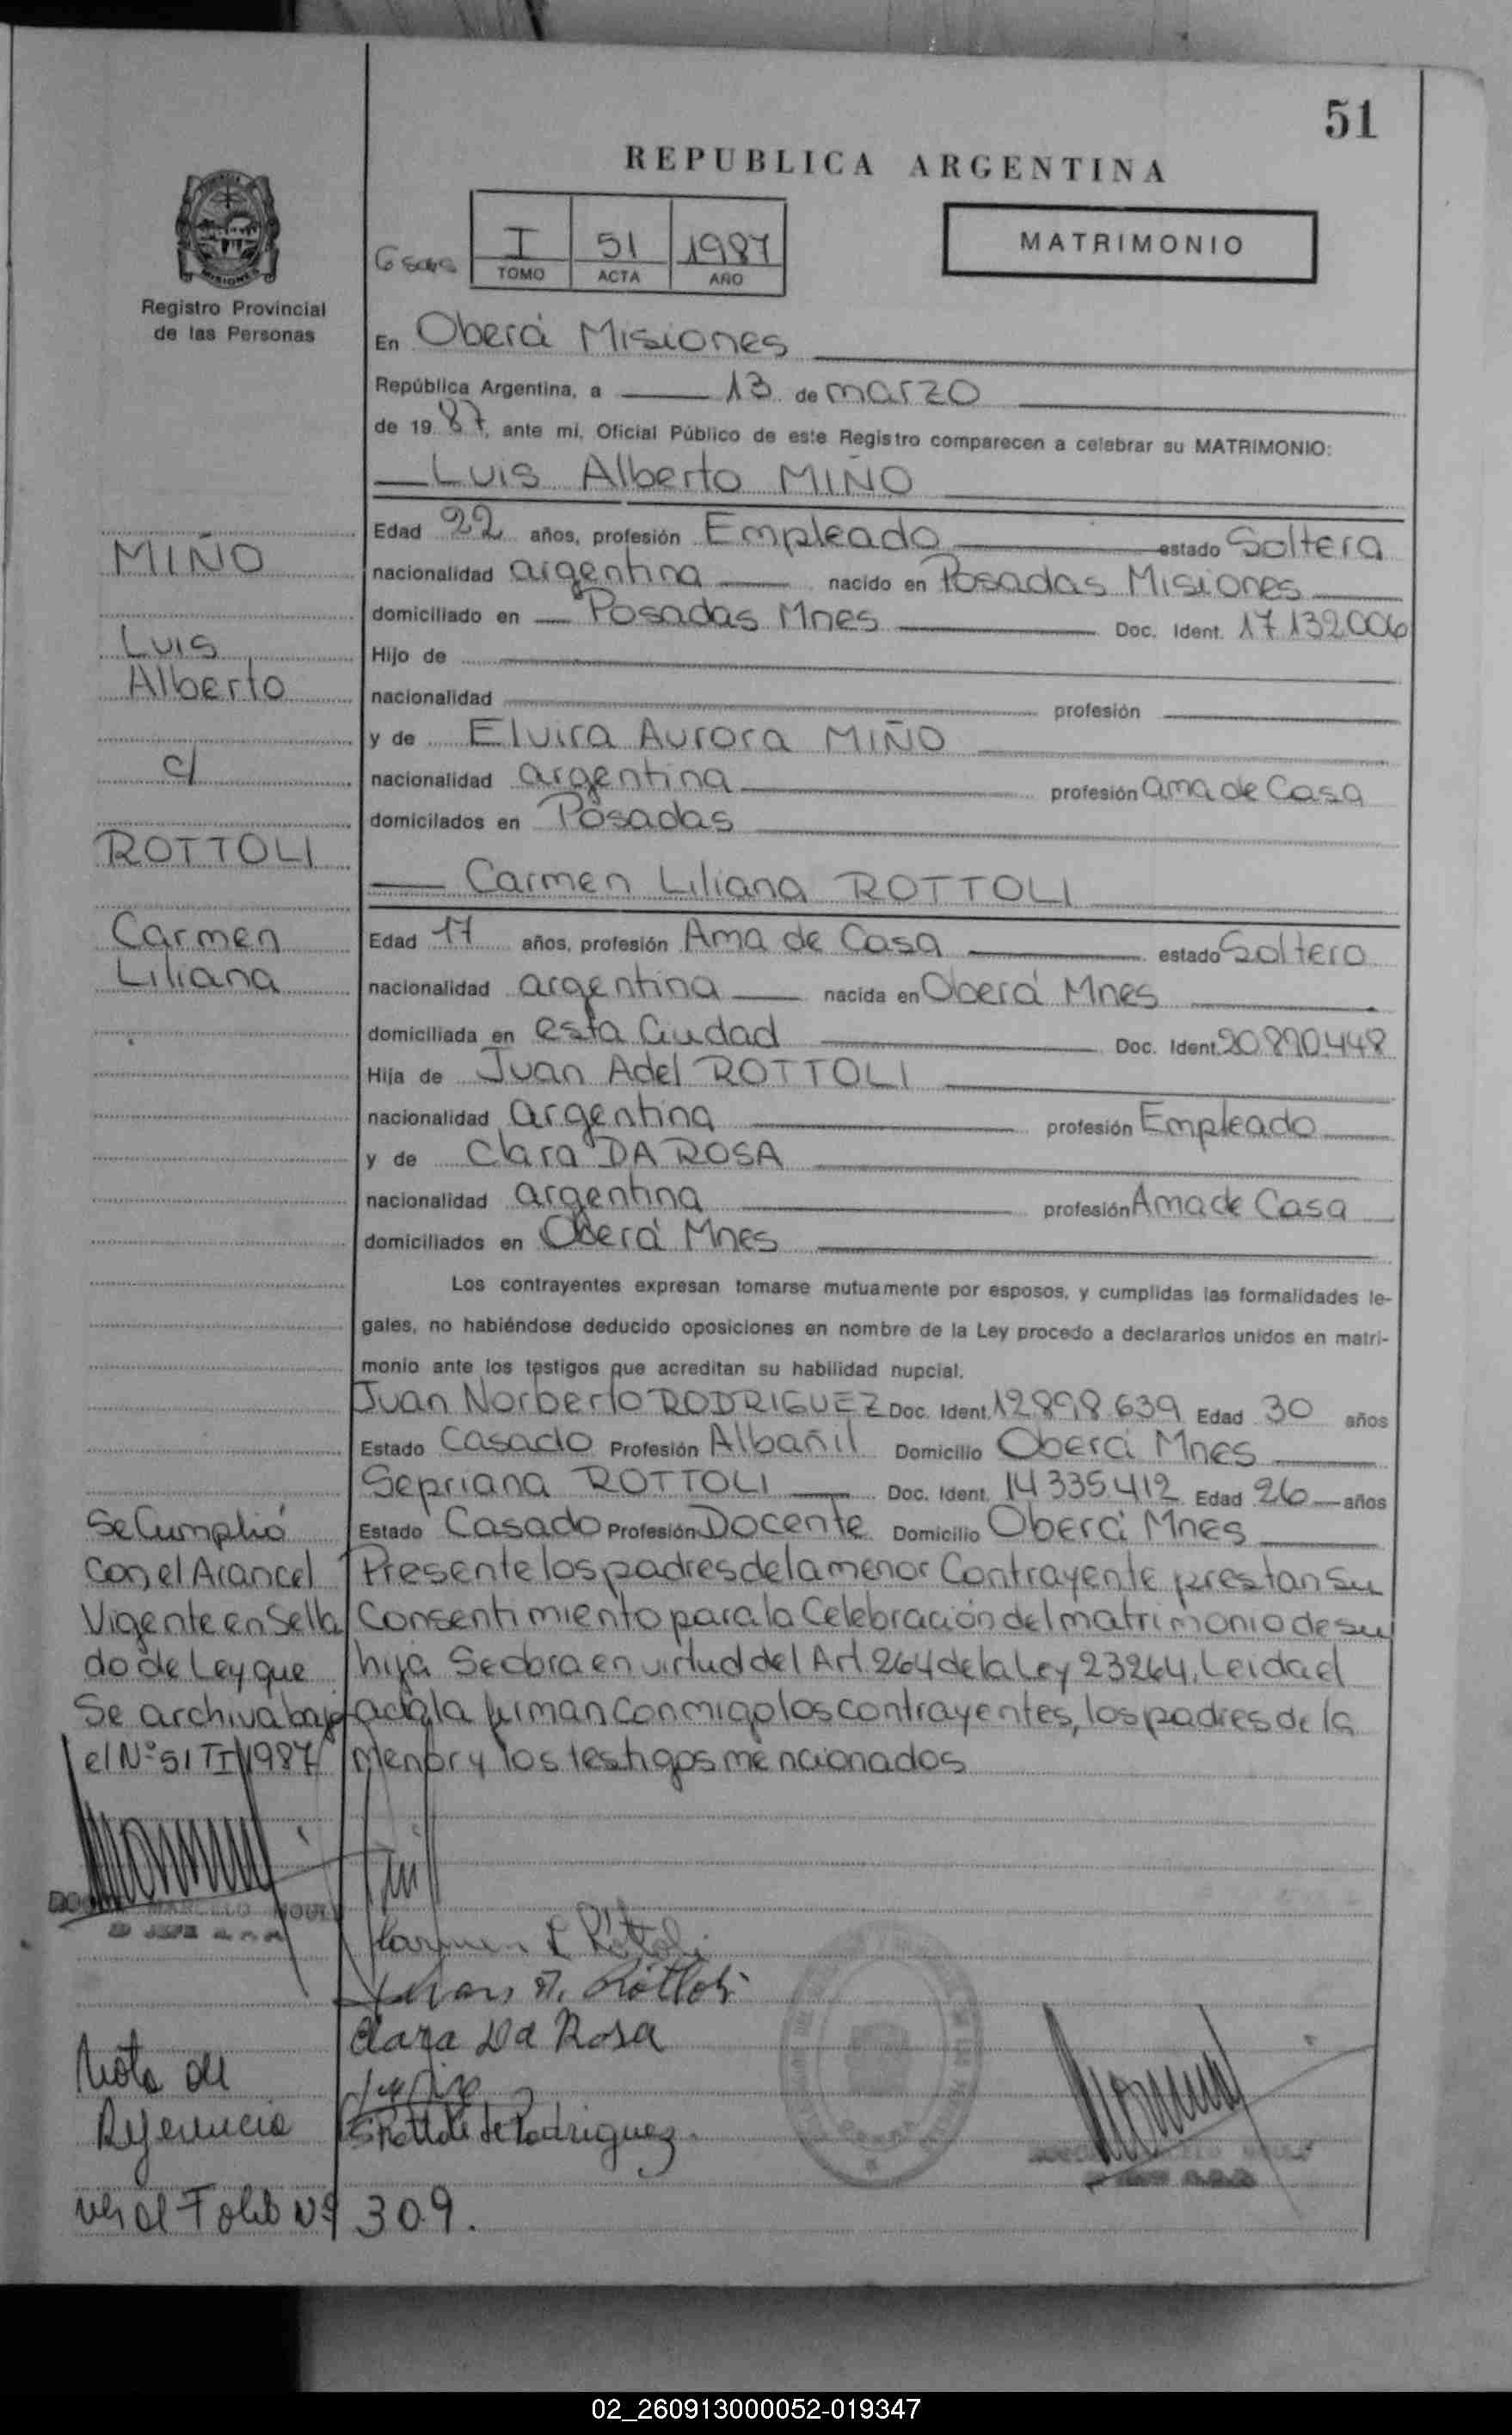 51
REPUBLICA ARGENTINA
I 51 1987
TOMO ACTA AÑO
MATRIMONIO
MISIONES
Registro Provincial
de las Personas
En Oberá Misiones
República Argentina, a 13 de marzo
de 1987, ante mi, Oficial Público de este Registro comparecen a celebrar su MATRIMONIO:
Luis Alberto MIÑO
Edad 22 años, profesión Empleado estado Soltera
MIÑO
nacionalidad argentina nacido en Posadas Misiones
domiciliado en Posadas Mnes Doc. Ident. 17.132.006
Luis
Hijo de
Alberto
nacionalidad profesión
y de Elvira Aurora MIÑO
c/
nacionalidad argentina profesión ama de Casa
domicilados en Posadas
ROTTOLI
Carmen Liliana ROTTOLI
Carmen
Edad 17 años, profesión Ama de Casa estado Soltero
Liliana
nacionalidad argentina nacida en Oberá Mnes
domiciliada en esta Ciudad Doc. Ident. 20.890.448
Hija de Juan Adel ROTTOLI
nacionalidad argentina profesión Empleado
y de Clara DA ROSA
nacionalidad argentina profesión Ama de Casa
domiciliados en Oberá Mnes
Los contrayentes expresan tomarse mutuamente por esposos, y cumplidas las formalidades le-
gales, no habiéndose deducido oposiciones en nombre de la Ley procedo a declararlos unidos en matri-
monio ante los testigos que acreditan su habilidad nupcial.
Juan Norberto RODRIGUEZ Doc. Ident. 12.898.639 Edad 30 años
Estado Casado Profesión Albañil Domicilio Oberá Mnes
Sepriana ROTTOLI Doc. Ident. 14.335.412 Edad 26 años
Estado Casado Profesión Docente Domicilio Oberá Mnes
Presente los padres de la menor Contrayente prestan su
Consentimiento para la Celebración del matrimonio de su
hija Se obra en virtud del Art. 264 de la Ley 23264. Leida el
acta la firman conmigo los contrayentes, los padres de la
menor y los testigos mencionados
Se Cumplió
Con el Arancel
Vigente en Sella
do de Ley que
Se archiva bajo
el Nº 51 TI 1987
MARCELO
Carmen L Rottoli
Juan A. Rottoli
Clara Da Rosa
S Rottoli de Rodriguez.
Nota de
Referencia
ver al Folio Nº 309.
02_260913000052-019347